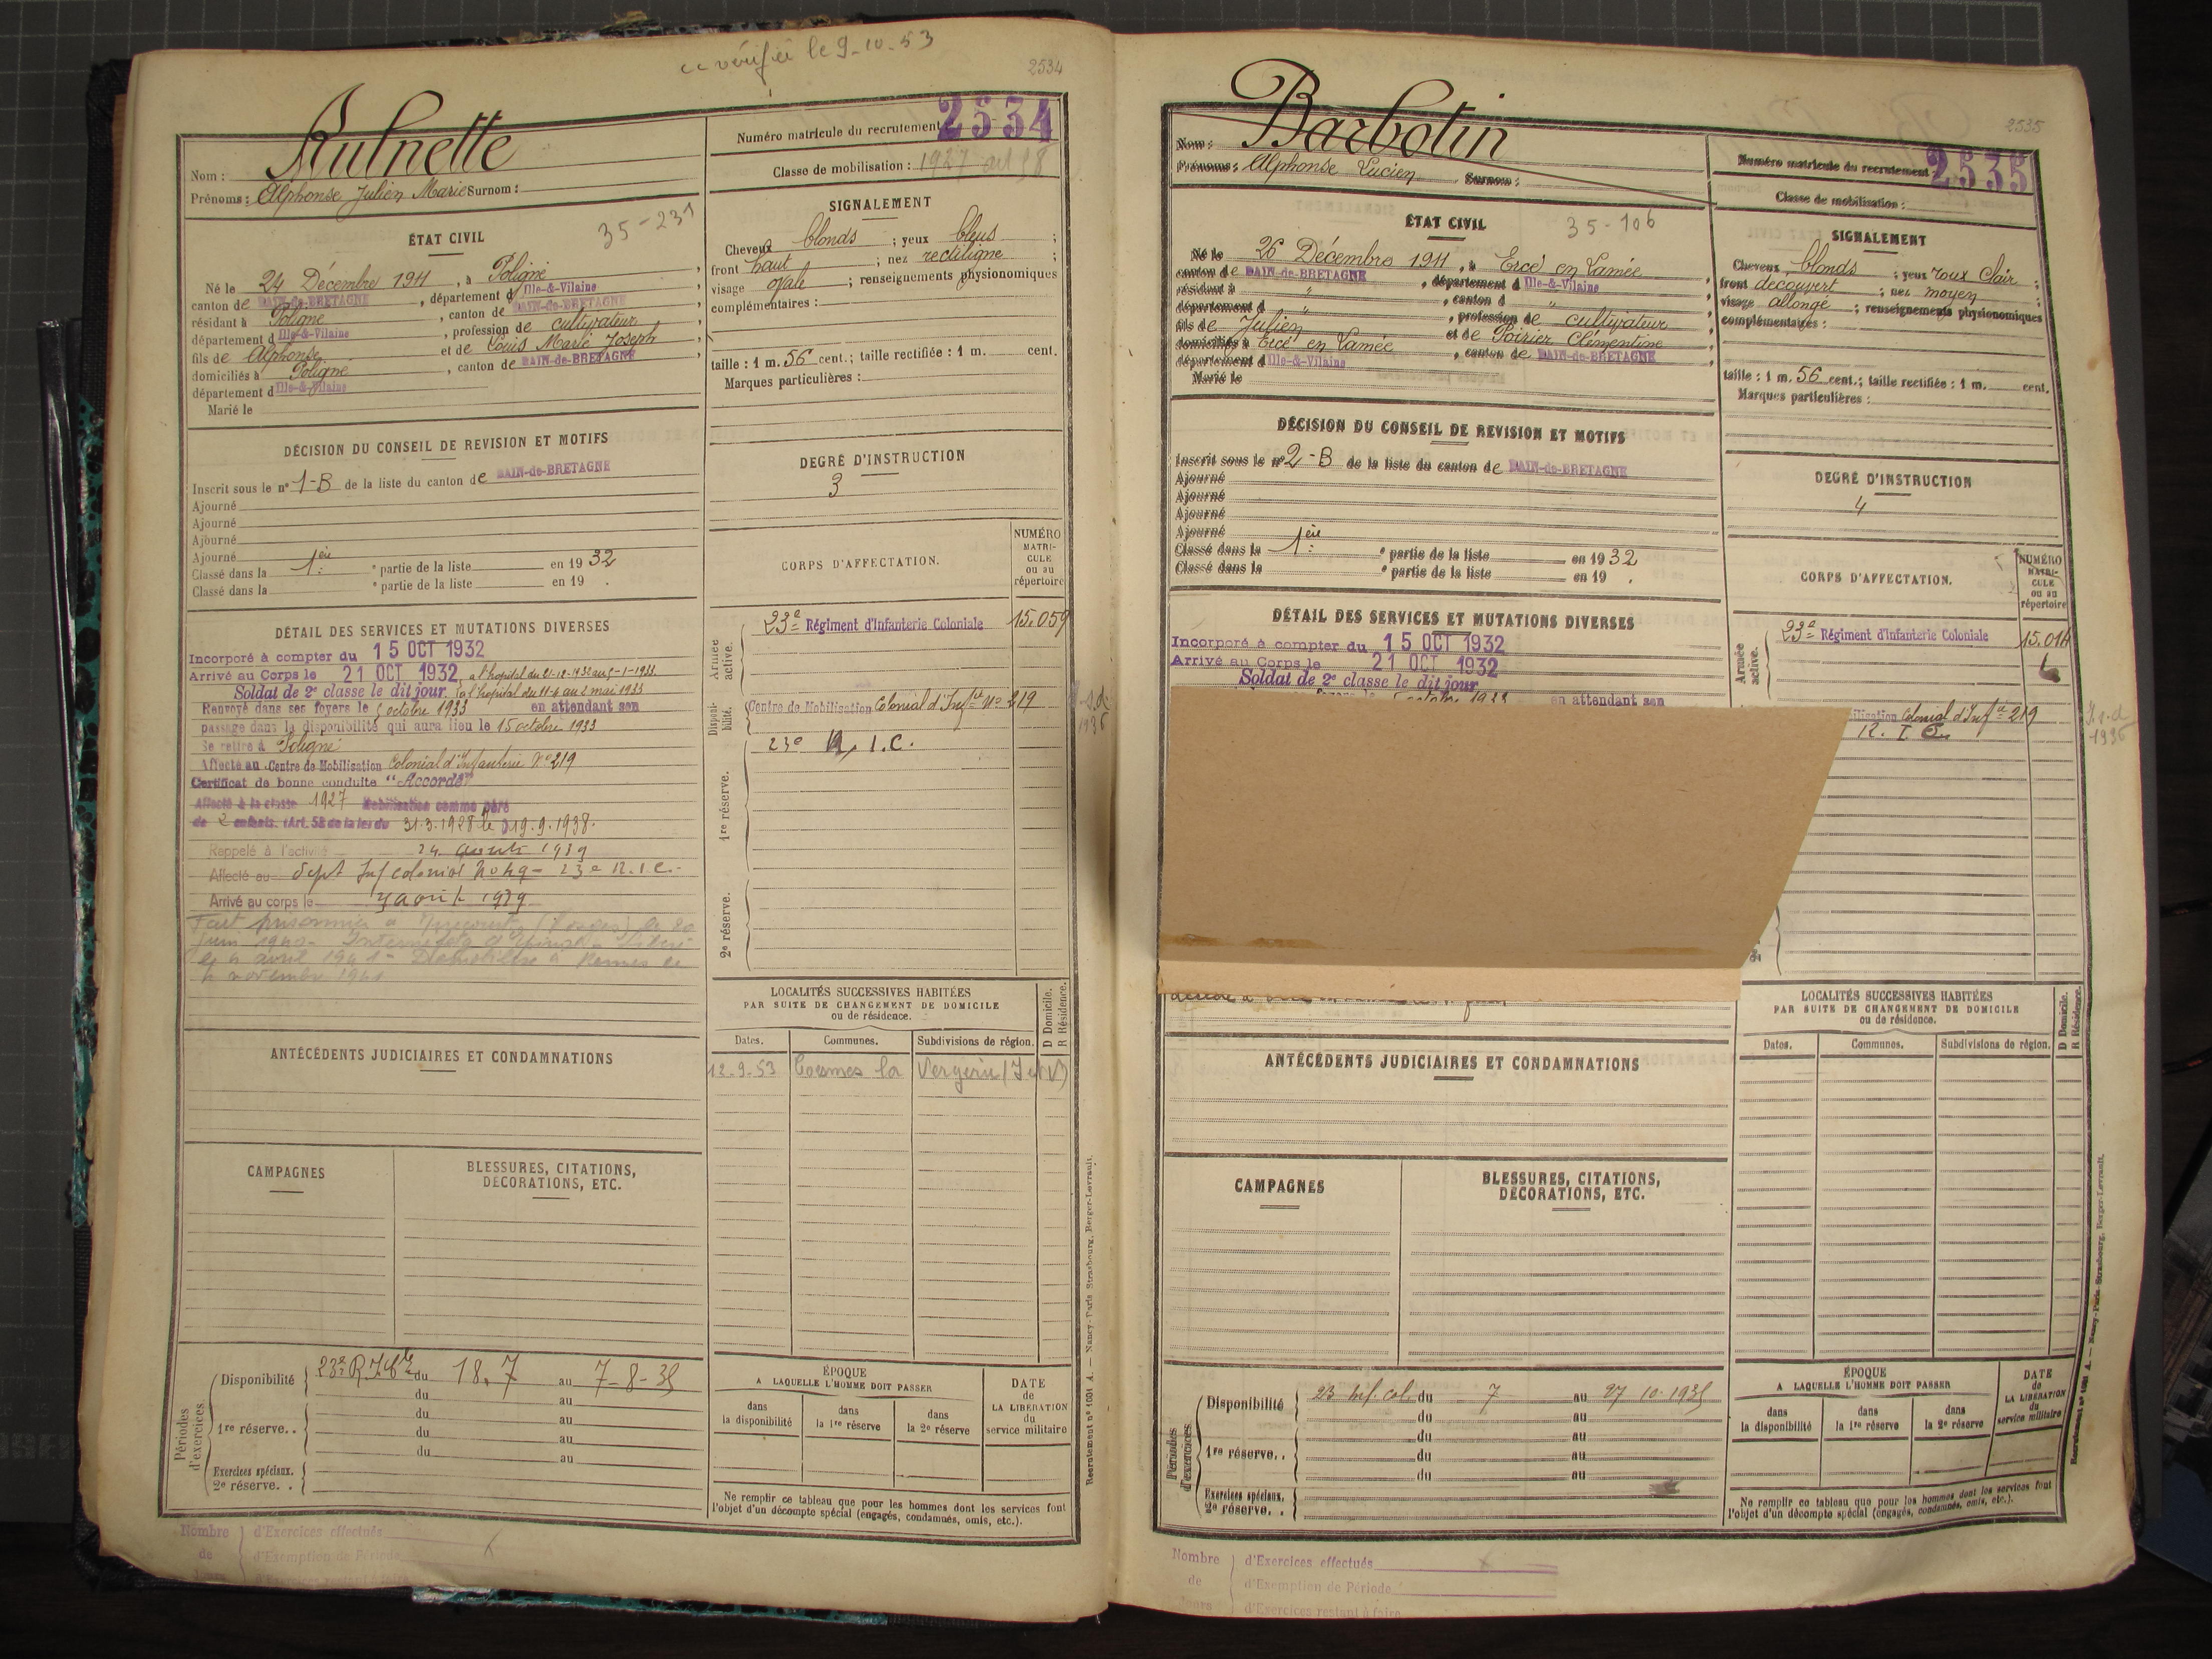 cc vérifié le 9-10-53
2534
Aulnette
Nom :
Prénoms : Alphonse Julien Marie Surnom :
Numéro matricule du recrutement 2534
Classe de mobilisation : 1927
ÉTAT CIVIL
35-231
Né le 24 Décembre 1911, à Poligné,
canton de BAIN-de-BRETAGNE, département d Ille-&-Vilaine
résidant à Poligné, canton de BAIN-de-BRETAGNE
département d Ille-&-Vilaine, profession de cultivateur,
fils de Alphonse et de Louis Marie Joseph
domiciliés à Poligné, canton de BAIN-de-BRETAGNE,
département d Ille-&-Vilaine
Marié le
SIGNALEMENT
Cheveux blonds ; yeux bleus ;
front haut ; nez rectiligne ;
visage ovale ; renseignements physionomiques
complémentaires :
taille : 1 m. 56 cent.; taille rectifiée : 1 m. cent.
Marques particulières :
DÉCISION DU CONSEIL DE REVISION ET MOTIFS
Inscrit sous le n° 1-B de la liste du canton de BAIN-de-BRETAGNE
Ajourné
Ajourné
Ajourné
Ajourné
Classé dans la 1ère partie de la liste en 19 32
Classé dans la e partie de la liste en 19 .
DEGRÉ D'INSTRUCTION
3
CORPS D'AFFECTATION.
NUMÉRO MATRICULE ou au répertoire
Armée active.
23e Régiment d'Infanterie Coloniale 15.059
Disponibilité.
Centre de Mobilisation Colonial d'Infie N° 219
1936
1re réserve.
23e R.I.C.
2e réserve.
DÉTAIL DES SERVICES ET MUTATIONS DIVERSES
Incorporé à compter du 15 OCT 1932
Arrivé au Corps le 21 OCT 1932, à l'hopital du 21-12-1932 au 5-1-1933.
Soldat de 2e classe le dit jour. à l'hopital du 11-4 au 2 mai 1933
Renvoyé dans ses foyers le octobre 1933 en attendant son
passage dans la disponibilité qui aura lieu le 15 octobre 1933
Se retire à Poligné
Affecté au Centre de Mobilisation Colonial d'Infanterie N° 219
Certificat de bonne conduite "Accordé"
Affecté à la classe 1927 Mobilisation comme père
de 2 enfants. (Art. 58 de la loi du 31.3.1928 le 19.9.1938.
Rappelé à l'activité 24 août 1939
Affecté au dépôt Inf colonial 23e R.I.C.
Arrivé au corps le 1939
Fait prisonnier à Mirecourt (Vosges) le 20
juin 1940 - Interné à Epinal - Libéré
le 4 avril 1941 - Démobilisé à Rennes le
4 novembre 1941
ANTÉCÉDENTS JUDICIAIRES ET CONDAMNATIONS
LOCALITÉS SUCCESSIVES HABITÉES
PAR SUITE DE CHANGEMENT DE DOMICILE
ou de résidence.
D Domicile. R Résidence.
Dates. Communes. Subdivisions de région.
12-9-53 Coësmes la Vergerie (I et V)
CAMPAGNES
BLESSURES, CITATIONS,
DÉCORATIONS, ETC.
Périodes d'exercices.
Disponibilité 23e R.I.C. du 18.7 au 7-8-35
du au
1re réserve.. du au
du au
du au
Exercices spéciaux.
2e réserve. .
ÉPOQUE
A LAQUELLE L'HOMME DOIT PASSER
dans la disponibilité
dans la 1re réserve
dans la 2e réserve
DATE de LA LIBÉRATION du service militaire
Ne remplir ce tableau que pour les hommes dont les services font
l'objet d'un décompte spécial (engagés, condamnés, omis, etc.).
Recrutement n° 1031 A. — Nancy-Paris-Strasbourg, Berger-Levrault.
Nombre de jours
d'Exercices effectués
d'Exemption de Période
d'Exercices restant à faire
2535
Barbotin
Nom :
Prénoms : Alphonse Lucien Surnom :
Numéro matricule du recrutement 2535
Classe de mobilisation :
ÉTAT CIVIL
35-106
Né le 26 Décembre 1911, à Ercé en Lamée
canton de BAIN-de-BRETAGNE, département d Ille-&-Vilaine
résidant à ", canton d "
département d ", profession de cultivateur
fils de Julien et de Poirier Clémentine
domiciliés à Ercé en Lamée, canton de BAIN-de-BRETAGNE
département d Ille-&-Vilaine
Marié le
SIGNALEMENT
Cheveux blonds ; yeux roux clair ;
front découvert ; nez moyen ;
visage allongé ; renseignements physionomiques
complémentaires :
taille : 1 m. 56 cent.; taille rectifiée : 1 m. cent.
Marques particulières :
DÉCISION DU CONSEIL DE REVISION ET MOTIFS
Inscrit sous le n° 2-B de la liste du canton de BAIN-de-BRETAGNE
Ajourné
Ajourné
Ajourné
Ajourné
Classé dans la 1ère partie de la liste en 19 32
Classé dans la e partie de la liste en 19 .
DEGRÉ D'INSTRUCTION
4
CORPS D'AFFECTATION.
NUMÉRO MATRICULE ou au répertoire
Armée active.
23e Régiment d'Infanterie Coloniale 15.014
ilisation Colonial d'Infie 219
R.I.C.
1936
DÉTAIL DES SERVICES ET MUTATIONS DIVERSES
Incorporé à compter du 15 OCT 1932
Arrivé au Corps le 21 OCT 1932
Soldat de 2e classe le dit jour
octobre 1933 en attendant son
ANTÉCÉDENTS JUDICIAIRES ET CONDAMNATIONS
LOCALITÉS SUCCESSIVES HABITÉES
PAR SUITE DE CHANGEMENT DE DOMICILE
ou de résidence.
D Domicile. R Résidence.
Dates. Communes. Subdivisions de région.
CAMPAGNES
BLESSURES, CITATIONS,
DÉCORATIONS, ETC.
Périodes d'exercices
Disponibilité 23 Inf. col. du 7 au 27 10-1935
du au
1re réserve. . du au
du au
du au
Exercices spéciaux.
2e réserve. .
ÉPOQUE
A LAQUELLE L'HOMME DOIT PASSER
dans la disponibilité
dans la 1re réserve
dans la 2e réserve
DATE de LA LIBÉRATION du service militaire
Ne remplir ce tableau que pour les hommes dont les services font
l'objet d'un décompte spécial (engagés, condamnés, omis, etc.).
Recrutement n° 1031 A. — Nancy-Paris-Strasbourg, Berger-Levrault.
Nombre de jours
d'Exercices effectués
d'Exemption de Période
d'Exercices restant à faire